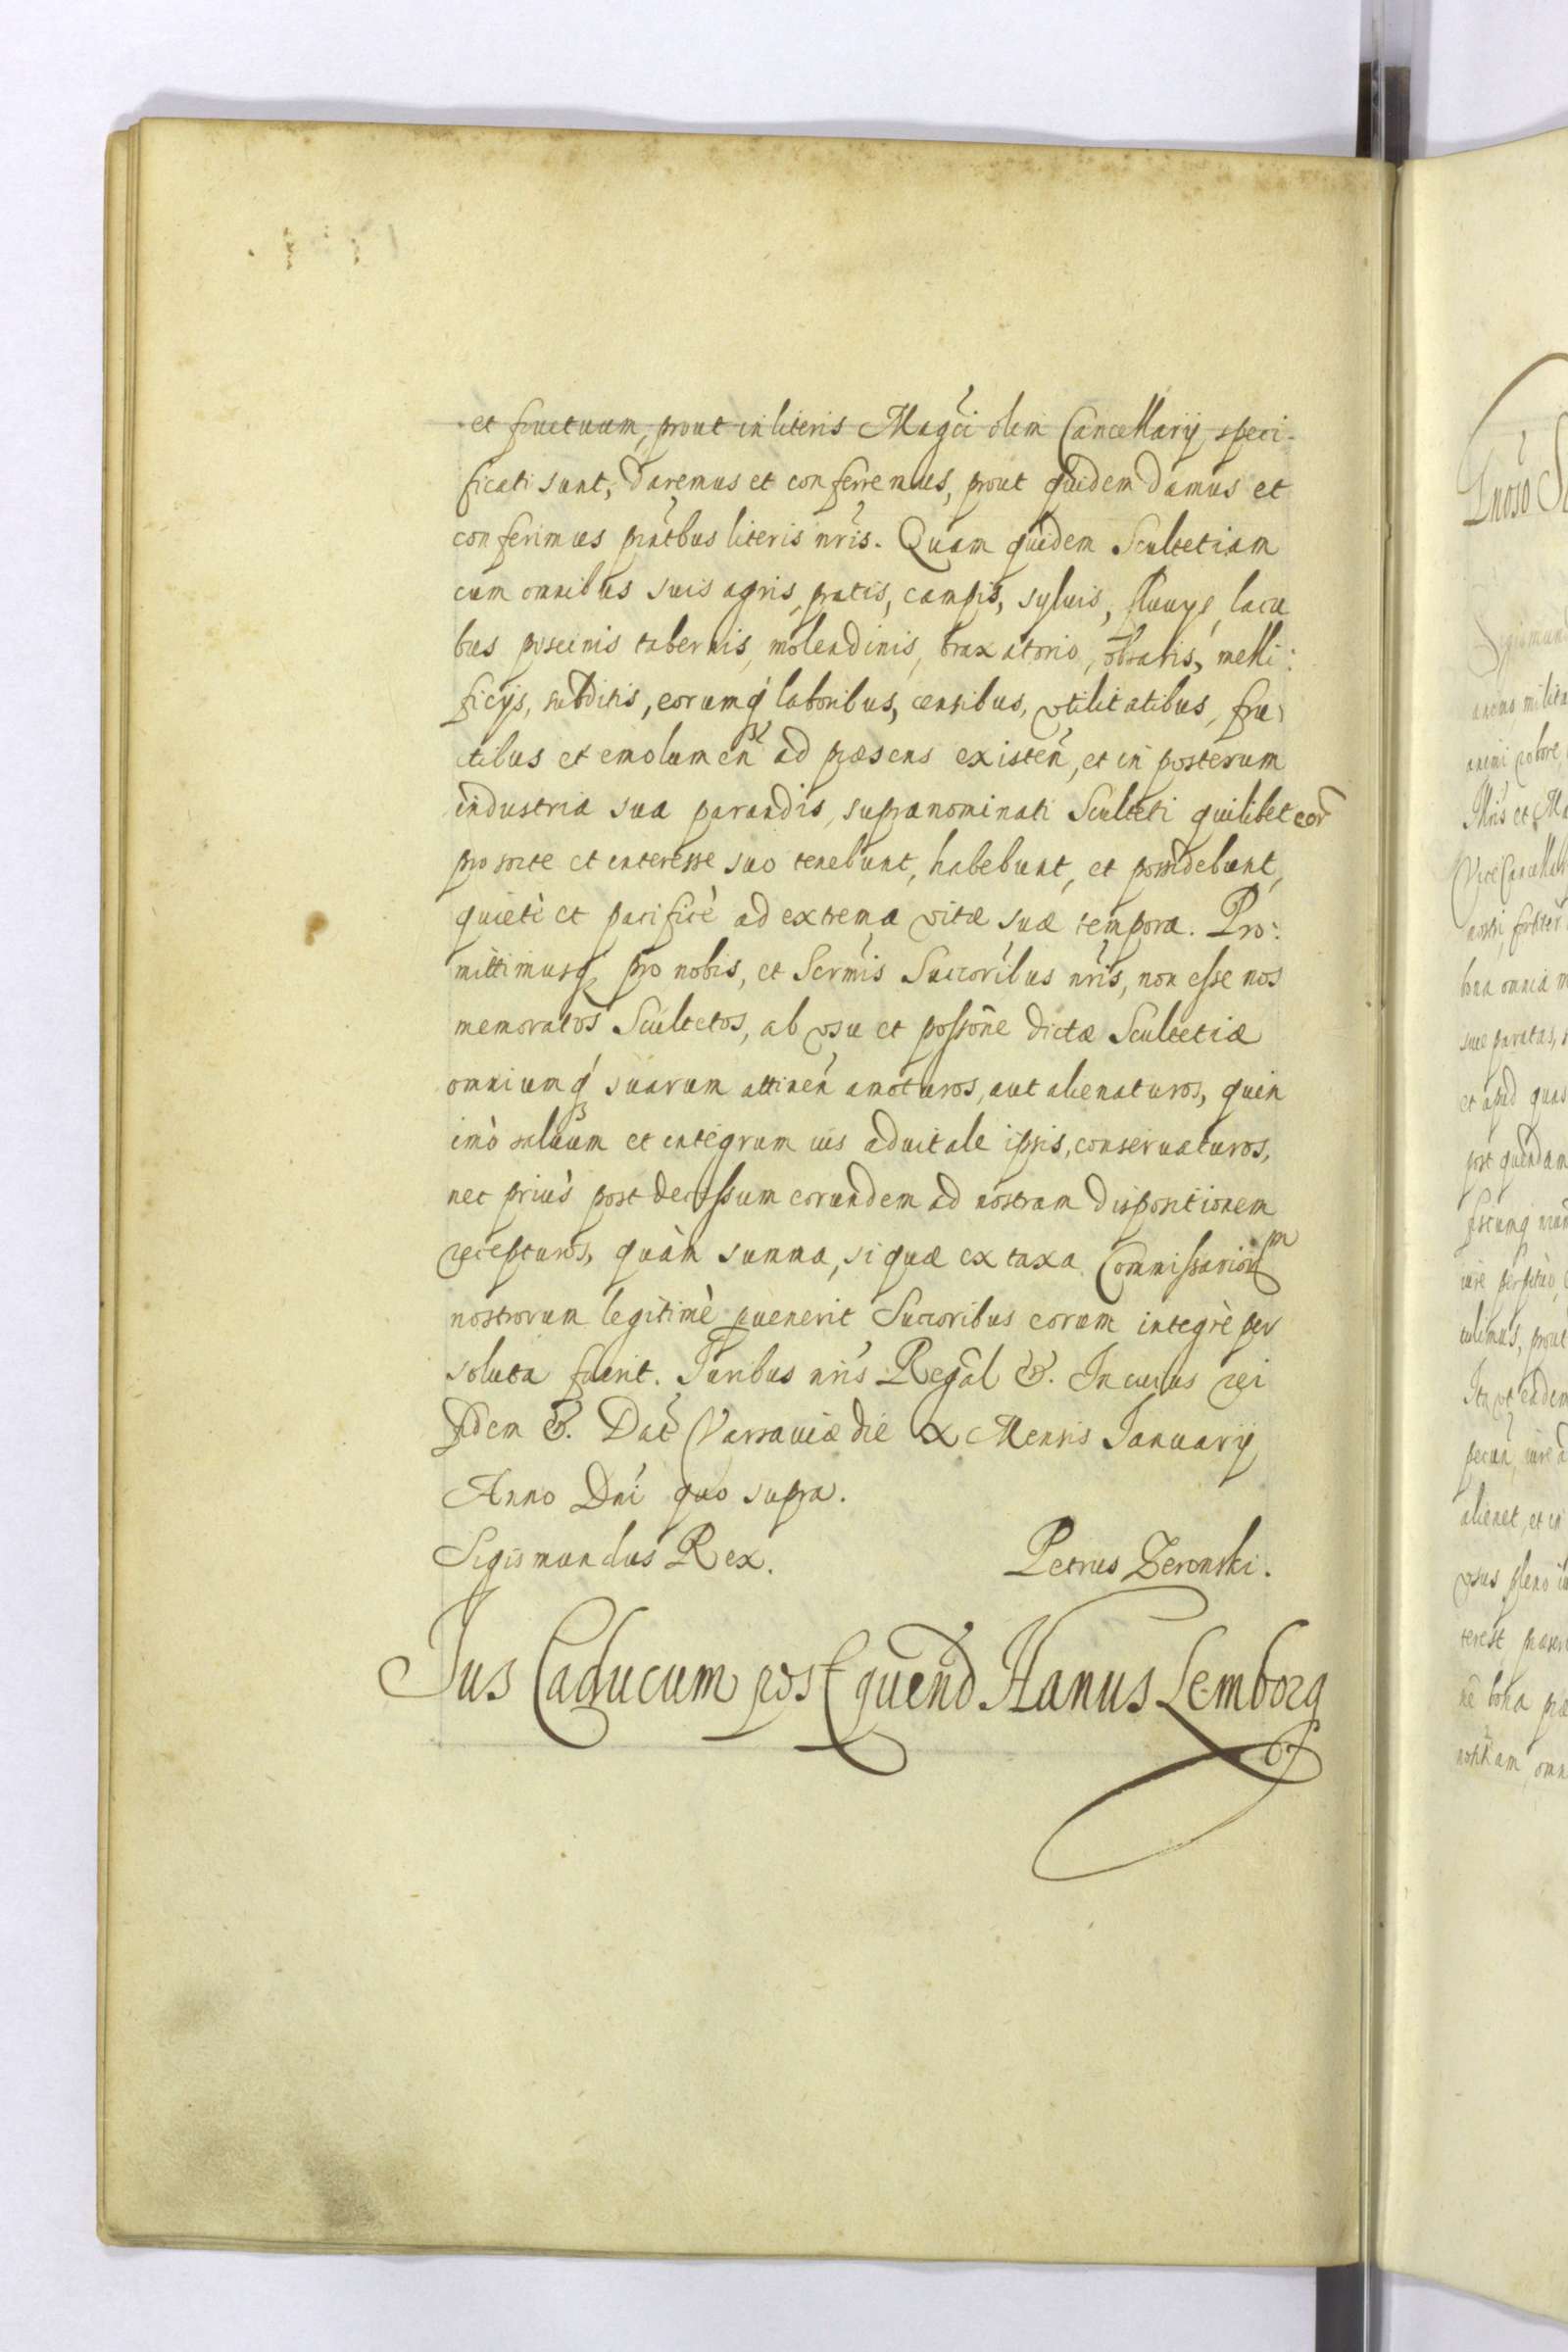 et fructuum, prout in literis Magci olim Cancellarij speci-
ficati sunt, daremus et conferremus, prout quidem damus et
conferimus pñtbus literis nr̃is. Quam quidem Scultetiam
cum omnibus suis agris, pratis, campis, syluis, fluuys, lacu
bus piscinis tabernis, molendinis, braxatorio, melli:
ficijs, subditis, eorumq́ laboribus, censibus, vtilitatibus, fru
ctibus et emolumen̄ ad præsens existen̄, et in posterum
industria sua parandis, supranominati Sculteti quilibet eor̃
pro sorte et interesse suo tenebunt, habebunt, et possidebunt,
quietè et pacificè ad extrema vitæ suæ tempora. Pro:
mittimusq́ pro nobis, et Serm̃is Succoribus nr̃is, non esse nos
memoratos Scultetos, ab vsu et possõne dictæ Scultetiæ
omniumq́ suarum attinen̄ amoturos, aut alienaturos, quin
imò saluum et integrum ius aduitale ipsis, conseruaturos,
nec priùs post decessum eorundem ad nostram dispositionem
recepturos, quàm summa, si quæ ex taxa Commissariorum
nostrorum legitimè puenerit Succoribus eorum integrè per
soluta fuerit. Iuribus nr̃is Regal &. In cuius rei
fidem &. Dat̃ Varsauiæ die X Mensis Ianuarij
Anno Dni quo supra.
Sigismundus Rex. Petrus Zeronski.
Jus Caducum post quend̃ Hanus Lemborg